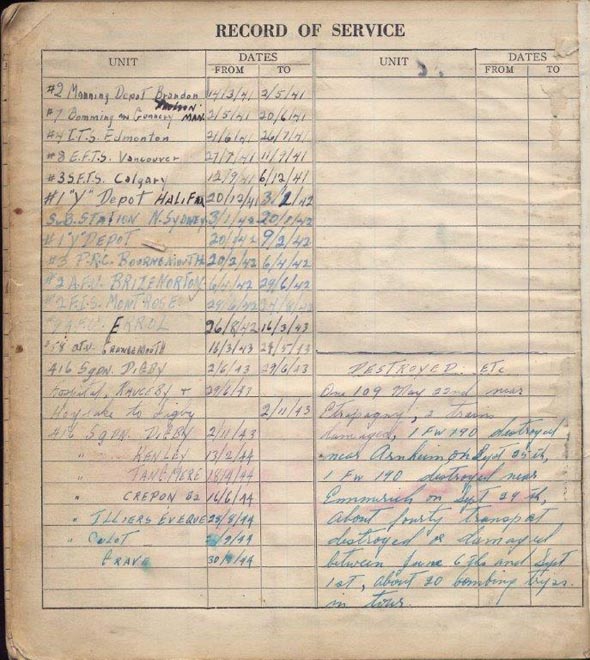 RECORD OF SERVICE
UNIT DATES UNIT DATES
FROM TO FROM TO
#2 Manning Depot Brandon 14/3/41 2/5/41
#7 Bomming and Gunnery MAN. 2/5/41 20/6/41
#4 I.T.S. Edmonton 21/6/41 26/7/41
#8 E.F.T.S. Vancouver 27/7/41 11/9/41
#3 S.F.T.S. Calgary 12/9/41 6/12/41
#1 "Y" Depot HALIFAX 20/12/41 3/1/42
SUB. STATION N. SYDNEY 3/1/42 20/1/42
#1 "Y" DEPOT 20/1/42 9/2/42
#3 P.R.C. BOURNEMOUTH 20/2/42 6/4/42
BRIZENORTON 6/4/42 29/6/42
#2 F.I.S. MONTROSE
ERROL 26/8/42 16/3/43
#58 OTU. GRANGEMOUTH 16/3/43 29/5/43
416 Sqdn. DIGBY 2/6/43 29/6/43
Hospital, RAUCEBY + 29/6/43
Hoylake to Digby 2/11/43
416 Sqdn. DIGBY 2/11/43
" KENLEY 13/2/44
" TANGMERE /4/44
" CREPON B2 16/6/44
" ILLIERS EVEQUE 28/8/44
" /9/44
GRAVE 30/9/44
DESTROYED. Etc
One 109 May 22nd near
2 trains
damaged, 1 FW 190 destroyed
near Arnhem on Sept 25th,
1 FW 190 destroyed near
Emmerich on Sept 29th,
About fourty transpot
destroyed & damaged
between June 6th and Sept
1st, about 20 bombing trips.
in tour.